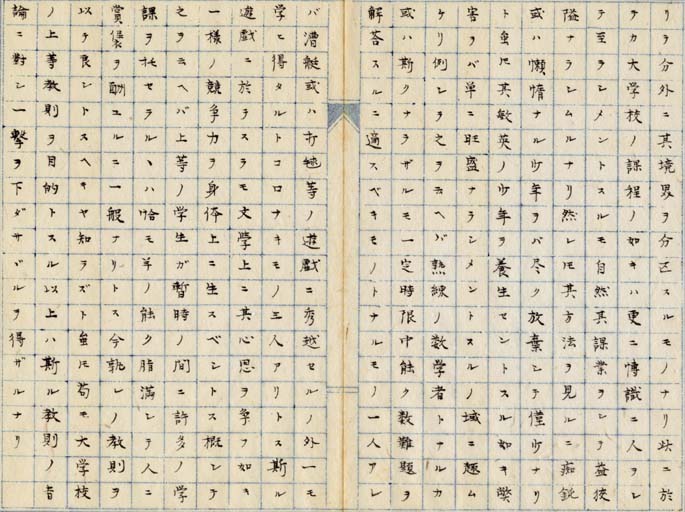 リテ分外ニ其境界ヲ分区スルモノナリ此ニ於
テカ大学校ノ課程ノ如キハ更ニ博識ニ人ヲシ
テ至ラシメントスルモ自然其課業ヲシテ益狭
隘ナラシムルナリ然レ𪜈其方法ヲ見ルニ痴鈍
或ハ懶惰ナル少年ヲバ尽ク放棄シテ僅少ナリ
ト虽𪜈其敏英ノ少年ヲ養生セントスル如キ弊
害ヲバ単ニ旺盛ナラシメントスルノ域ニ趣ム
ケリ例シ之ヲ云ヘバ熟練ノ数学者トナルカ
或ハ斯クナラザルモ一定時限中能ク数難題ヲ
解答スルニ適スベキモノトナルモノ一人アレ
バ漕艇或ハ打毬等ノ遊戯ニ秀越セルノ外一モ
学ヒ得タルトコロナキモノ三人アリトス斯ル
遊戯ニ於テスラモ文學上ニ其心思ヲ争フ如キ
一様ノ競争力ヲ身体上ニ生スベシトス概シテ
之ヲ云ヘバ上等ノ学生ガ暫時ノ間ニ許多ノ学
課ヲ托セラルヽハ恰モ羊ノ能ク脂満シテ人ニ
賞ヲ酬ユルニ一般ナリトス今孰レノ教則ヲ
以テ良シトスヘキヤ知ラズト虽𪜈苟モ大学校
ノ上等教則ヲ目的トスル以上ハ斯ル教則ノ旨
論ニ對シ一撃ヲ下ダサヾルヲ得ザルナリ